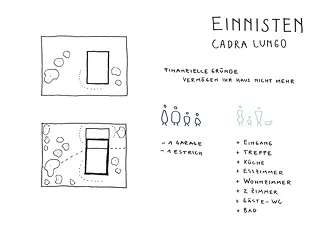 EINNISTEN
CADRA LUNGO
FINANZIELLE GRÜNDE
VERMÖGEN IHR HAUS NICHT MEHR
- 1 GARAGE
- 1 ESTRICH
+ EINGANG
+ TREPPE
+ KÜCHE
+ ESSZIMMER
+ WOHNZIMMER
+ 2 ZIMMER
+ GÄSTE-WC
+ BAD